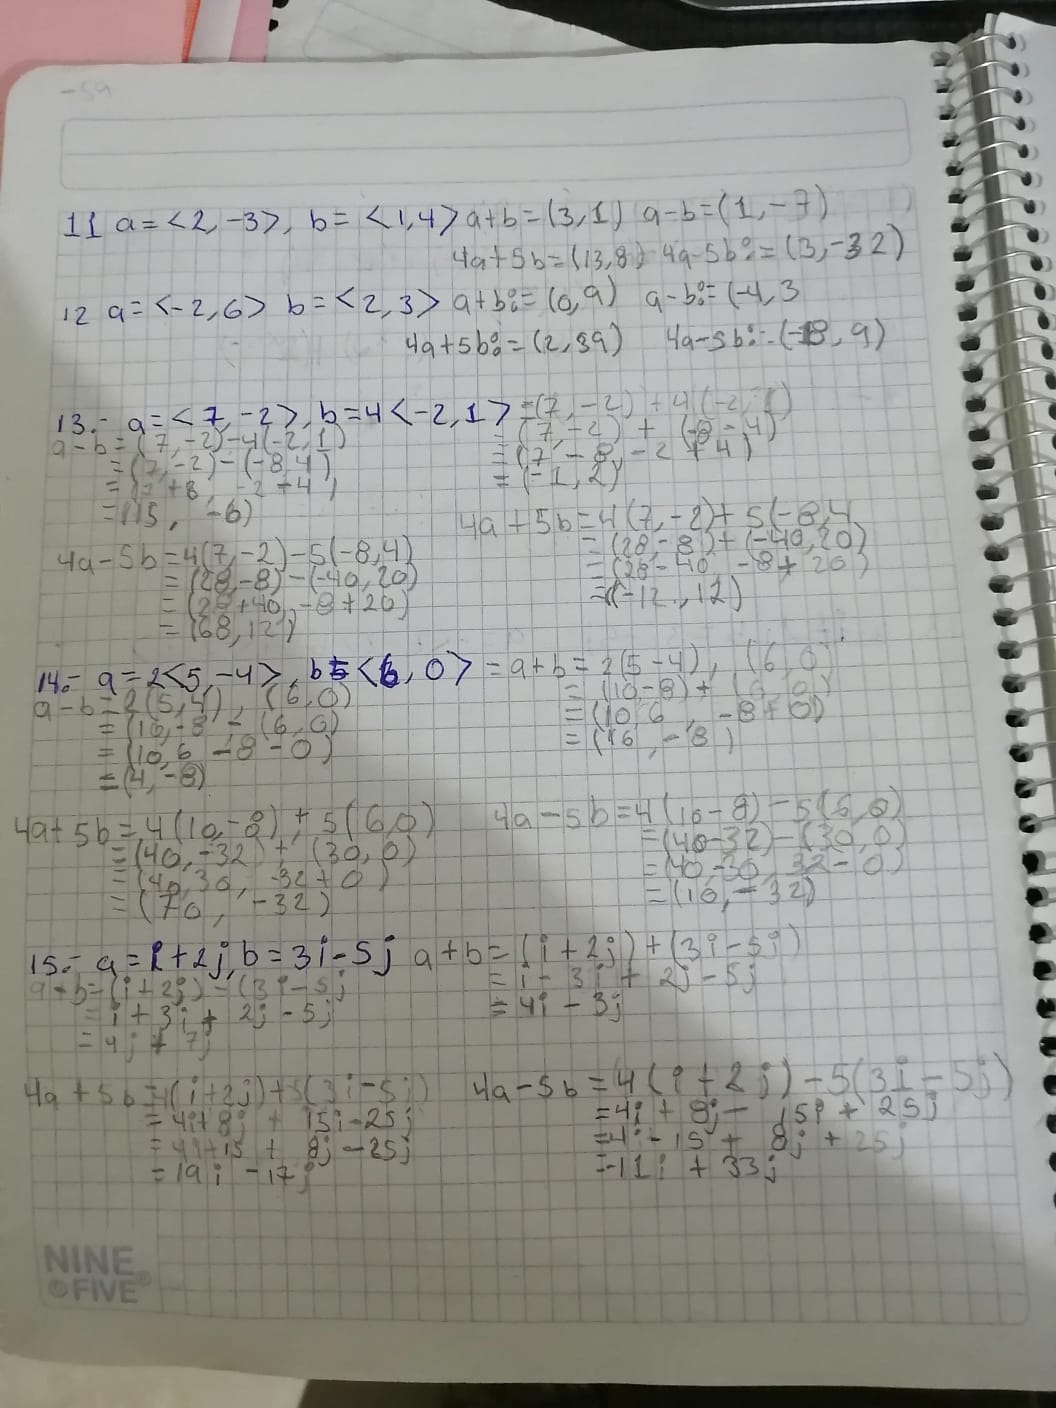 -59
11 a=<2,-3>, b=<1,4> a+b=(3,1) a-b=(1,-7)
4a+5b=(13,8) 4a-5b:=(3,-32)
12 a=<-2,6> b=<2,3> a+b:=(0,9) a-b:=(-4,3
4a+5b:=(2,39) 4a-5b:-(-18,9)
13.- a=<7,-2>, b=4<-2,1> =(7,-2)+4(-2,1)
a-b=(7,-2)-4(-2,1)
=(7,-2)-(-8,4)
=(7+8, -2+4)
=(15, -6)
=(7,-2)+(-8-4)
=(7-8,-2+4)
=(-1,2)
4a+5b=4(7,-2)+5(-8,4
=(28,-8)+(-40,20)
=(28-40, -8+20)
=(-12.,12)
4a-5b=4(7,-2)-5(-8,4)
=(28,-8)-(-40,20)
=(28+40,-8+20)
=(68,12)
14.- a=2<5,-4>, b=<6,0> =a+b=2(5-4), (6,0)
a-b=2(5,4), (6,0)
=(10,-8 - (6,0)
=(10,6 -8-0)
=(4,-8)
=(10-8)+(6,0)
=(10,6, -8+0)
=(16,-8)
4a+5b=4(10,-8)+5(6,0)
=(40,-32)+(30,0)
=(40,30, -32+0)
=(70, -32)
4a-5b=4(10-8)-5(6,0)
=(40-32)-(30,0)
=(40,-30,32-0)
=(10,-32)
15.- a=i+2j, b=3i-5j a+b=(i+2j)+(3i-5j)
a-b=(i+2j)-(3i-5j
=i+3i+2j-5j
=4j+7j
=i-3i+2j-5j
=4i-3j
4a+5b=4(i+2j)+5(3i-5j)
=4i+8j+15i-25j
=4i+15+8j-25j
=19i-17j
4a-5b=4(i+2j)-5(3i-5j)
=4i+8j-15i+25j
=4i-15+8j+25j
=-11i+33j
NINE
FIVE